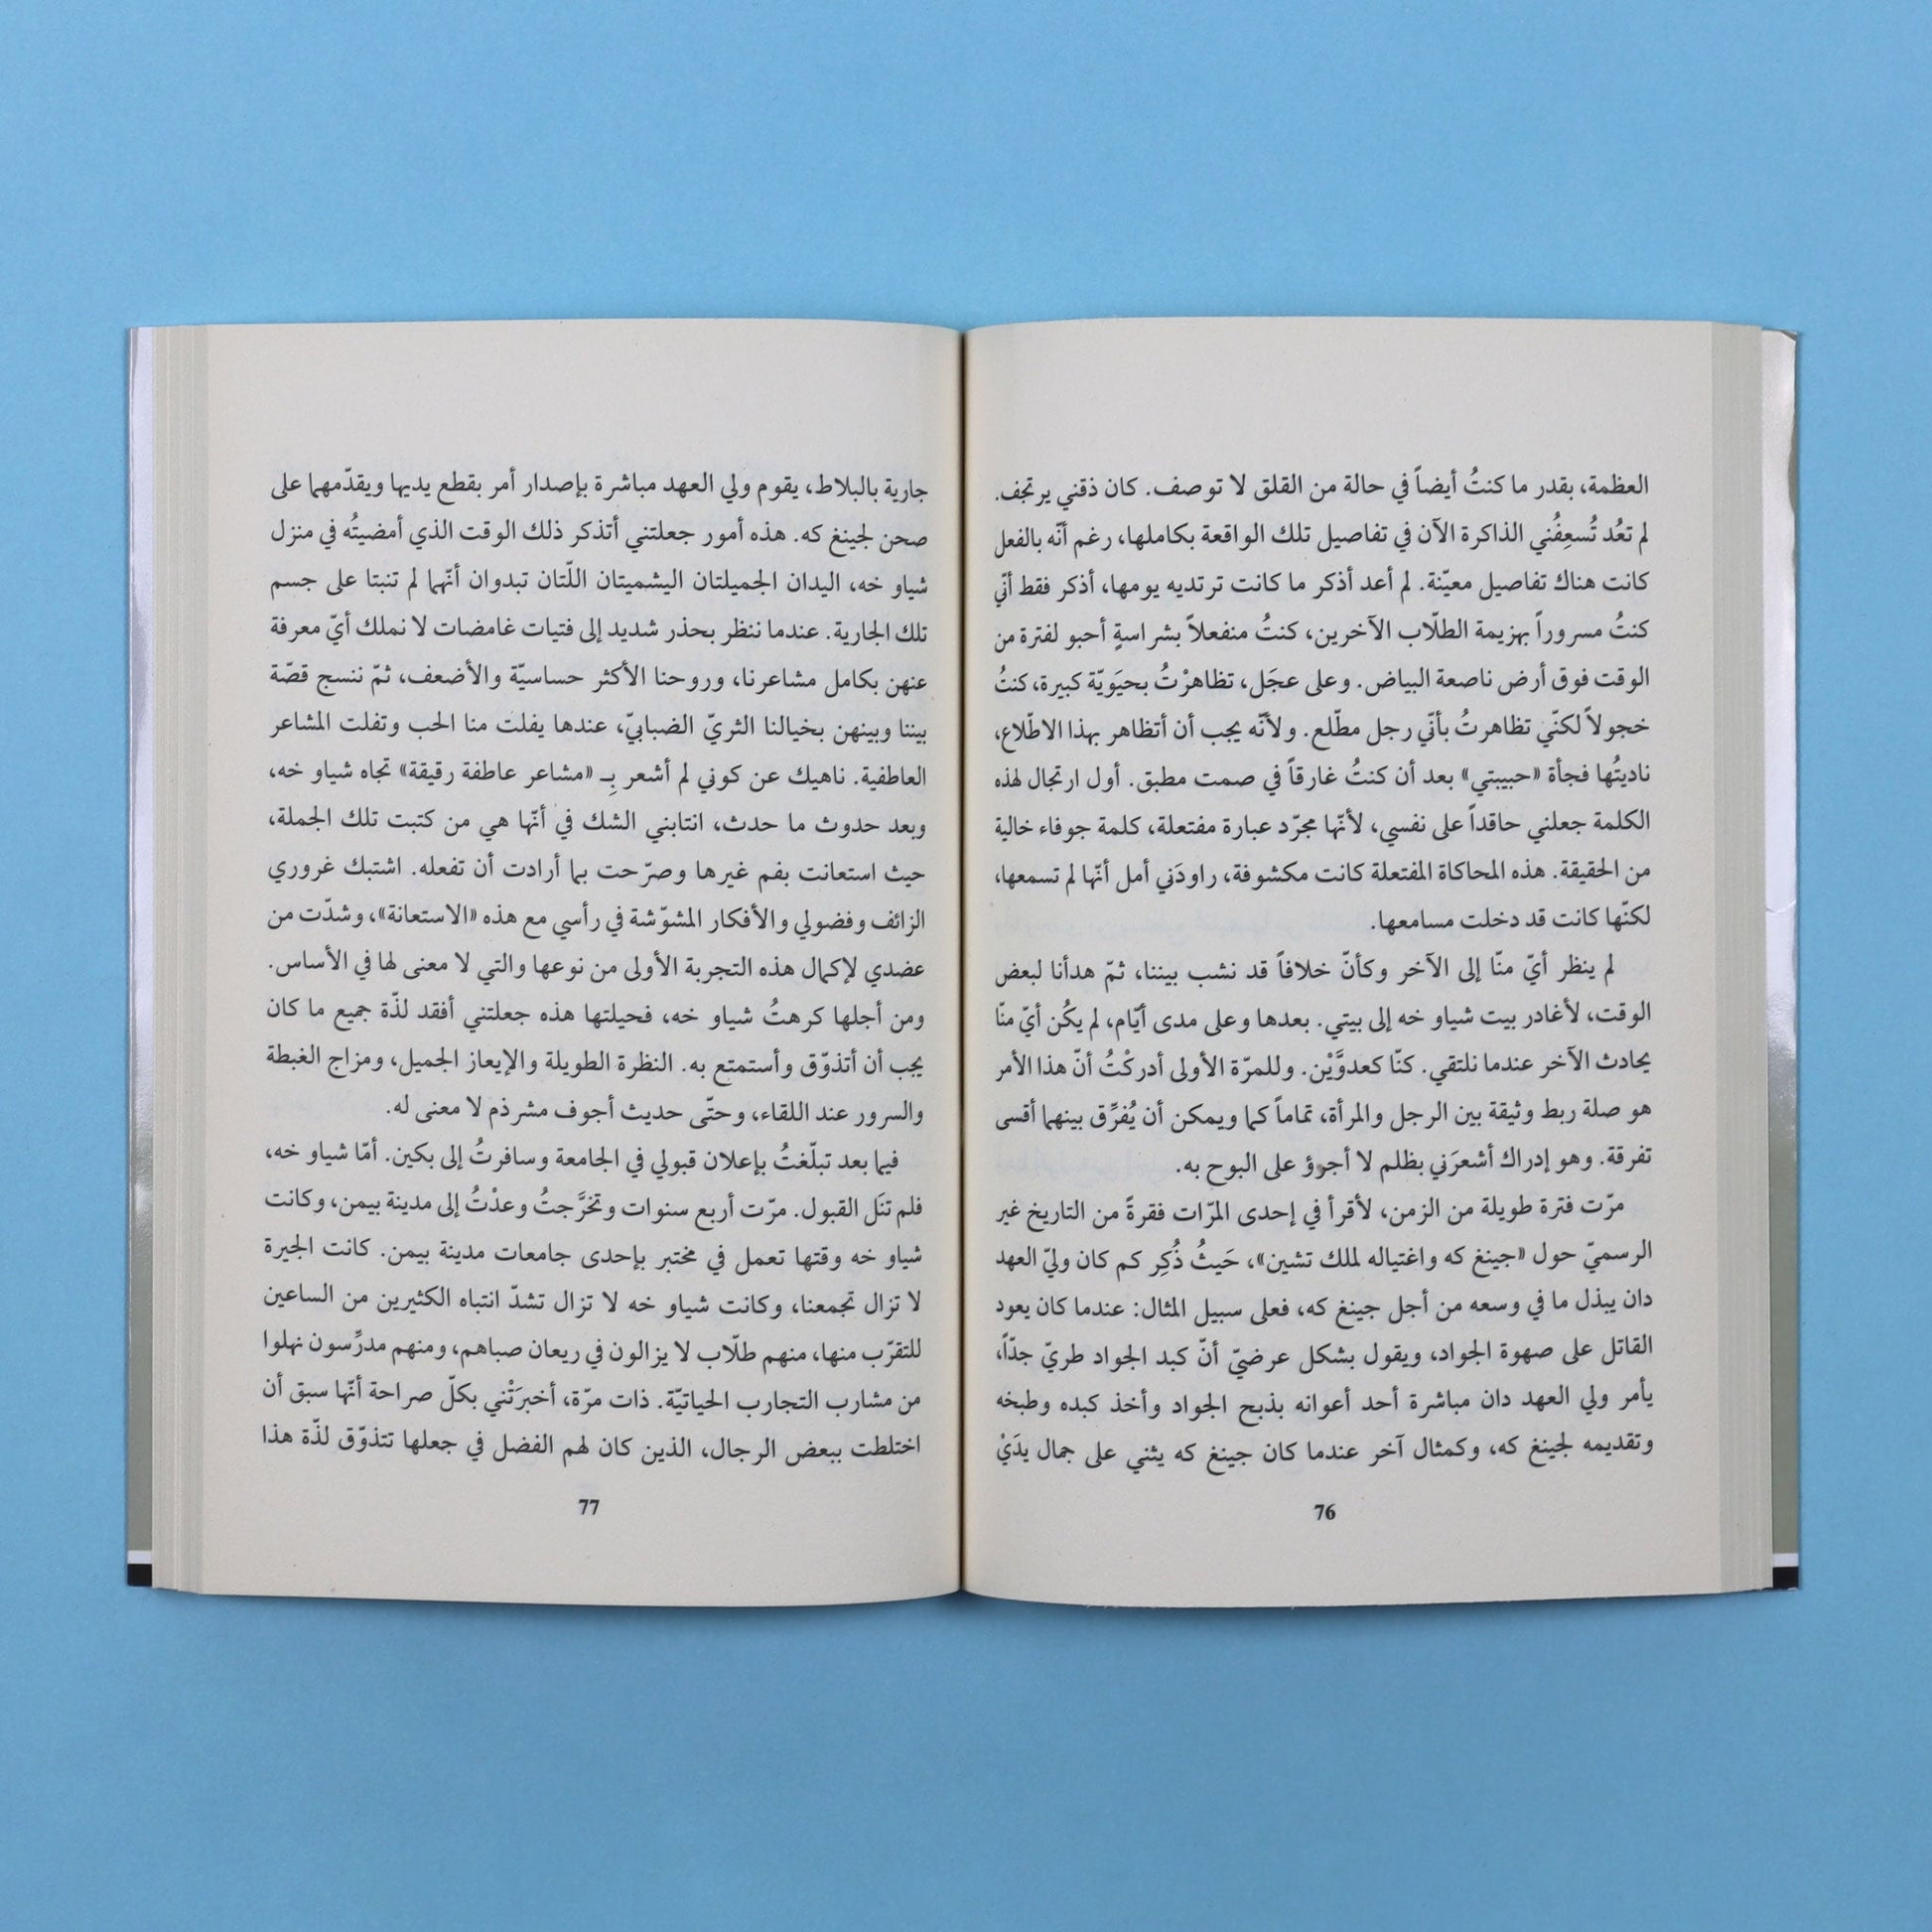 العظمة، بقدر ما كنتُ أيضاً في حالة من القلق لا توصف. كان ذقني يرتجف.
لم تعُد تُسعِفُني الذاكرة الآن في تفاصيل تلك الواقعة بكاملها، رغم أنّه بالفعل
كانت هناك تفاصيل معيّنة. لم أعد أذكر ما كانت ترتديه يومها، أذكر فقط أنّي
كنتُ مسروراً بهزيمة الطلّاب الآخرين، كنتُ منفعلاً بشراسةٍ أحبو لفترة من
الوقت فوق أرض ناصعة البياض. وعلى عجَل، تظاهرْتُ بحيَويّة كبيرة، كنتُ
خجولاً لكنّي تظاهرتُ بأنّي رجل مطّلع. ولأنّه يجب أن أتظاهر بهذا الاطّلاع،
ناديتُها فجأة «حبيبتي» بعد أن كنتُ غارقاً في صمت مطبق. أول ارتجال لهذه
الكلمة جعلني حاقداً على نفسي، لأنّها مجرّد عبارة مفتعلة، كلمة جوفاء خالية
من الحقيقة. هذه المحاكاة المفتعلة كانت مكشوفة، راودَني أمل أنّها لم تسمعها،
لكنّها كانت قد دخلت مسامعها.
لم ينظر أيّ منّا إلى الآخر وكأنّ خلافاً قد نشب بيننا، ثمّ هدأنا لبعض
الوقت، لأغادر بيت شياو خه إلى بيتي. بعدها وعلى مدى أيّام، لم يكُن أيّ منّا
يحادث الآخر عندما نلتقي. كنّا كعدوَّيْن. وللمرّة الأولى أدركْتُ أنّ هذا الأمر
هو صلة ربط وثيقة بين الرجل والمرأة، تماماً كما ويمكن أن يُفرِّق بينهما أقسى
تفرقة. وهو إدراك أشعرَني بظلم لا أجرؤ على البوح به.
مرّت فترة طويلة من الزمن، لأقرأ في إحدى المرّات فقرةً من التاريخ غير
الرسميّ حول «جينغ كه واغتياله لملك تشين»، حَيثُ ذُكِر كم كان وليّ العهد
دان يبذل ما في وسعه من أجل جينغ كه، فعلى سبيل المثال: عندما كان يعود
القاتل على صهوة الجواد، ويقول بشكل عرضيّ أنّ كبد الجواد طريّ جدّاً،
يأمر ولي العهد دان مباشرة أحد أعوانه بذبح الجواد وأخذ كبده وطبخه
وتقديمه لجينغ كه، وكمثال آخر عندما كان جينغ كه يثني على جمال يدَيْ
76
جارية بالبلاط، يقوم ولي العهد مباشرة بإصدار أمر بقطع يديها ويقدّمهما على
صحن لجينغ كه. هذه أمور جعلتني أتذكر ذلك الوقت الذي أمضيتُه في منزل
شياو خه، اليدان الجميلتان اليشميتان اللّتان تبدوان أنّهما لم تنبتا على جسم
تلك الجارية. عندما ننظر بحذر شديد إلى فتيات غامضات لا نملك أيّ معرفة
عنهن بكامل مشاعرنا، وروحنا الأكثر حساسيّة والأضعف، ثمّ ننسج قصّة
بيننا وبينهن بخيالنا الثريّ الضبابيّ، عندها يفلت منا الحب وتفلت المشاعر
العاطفية. ناهيك عن كوني لم أشعر بِـ «مشاعر عاطفة رقيقة» تجاه شياو خه،
وبعد حدوث ما حدث، انتابني الشك في أنّها هي من كتبت تلك الجملة،
حيث استعانت بفم غيرها وصرّحت بما أرادت أن تفعله. اشتبك غروري
الزائف وفضولي والأفكار المشوّشة في رأسي مع هذه «الاستعانة»، وشدّت من
عضدي لإكمال هذه التجربة الأولى من نوعها والتي لا معنى لها في الأساس.
ومن أجلها كرهتُ شياو خه، فحيلتها هذه جعلتني أفقد لذّة جميع ما كان
يجب أن أتذوّق وأستمتع به. النظرة الطويلة والإيعاز الجميل، ومزاج الغبطة
والسرور عند اللقاء، وحتّى حديث أجوف مشرذم لا معنى له.
فيما بعد تبلّغتُ بإعلان قبولي في الجامعة وسافرتُ إلى بكين. أمّا شياو خه،
فلم تنَل القبول. مرّت أربع سنوات وتخرَّجتُ وعدْتُ إلى مدينة بيمن، وكانت
شياو خه وقتها تعمل في مختبر بإحدى جامعات مدينة بيمن. كانت الجيرة
لا تزال تجمعنا، وكانت شياو خه لا تزال تشدّ انتباه الكثيرين من الساعين
للتقرّب منها، منهم طلّاب لا يزالون في ريعان صباهم، ومنهم مدرِّسون نهلوا
من مشارب التجارب الحياتيّة. ذات مرّة، أخبرَتْني بكلّ صراحة أنّها سبق أن
اختلطت ببعض الرجال، الذين كان لهم الفضل في جعلها تتذوّق لذّة هذا
77